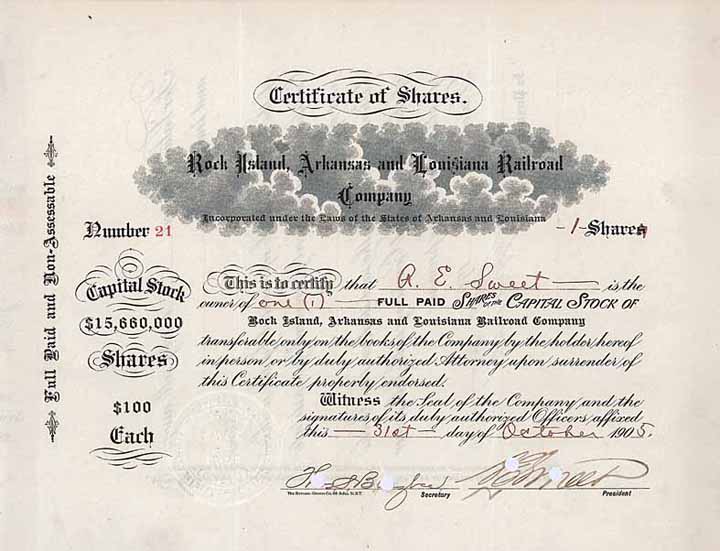 Certificate of Shares.
Rock Island, Arkansas and Louisiana Railroad
Company
Incorporated under the Laws of the States of Arkansas and Louisiana
Number 21
-1- Shares
Full Paid and Non-Assessable
Capital Stock
$15,660,000
Shares
$100
Each
This is to certify that R. E. Sweet is the
owner of one (1) FULL PAID SHARES OF THE CAPITAL STOCK OF
Rock Island, Arkansas and Louisiana Railroad Company
transferable only on the books of the Company by the holder hereof
in person or by duly authorized Attorney upon surrender of
this Certificate properly endorsed.
Witness the Seal of the Company and the
signatures of its duly authorized Officers affixed
this 31st day of October 1905.
Secretary
President